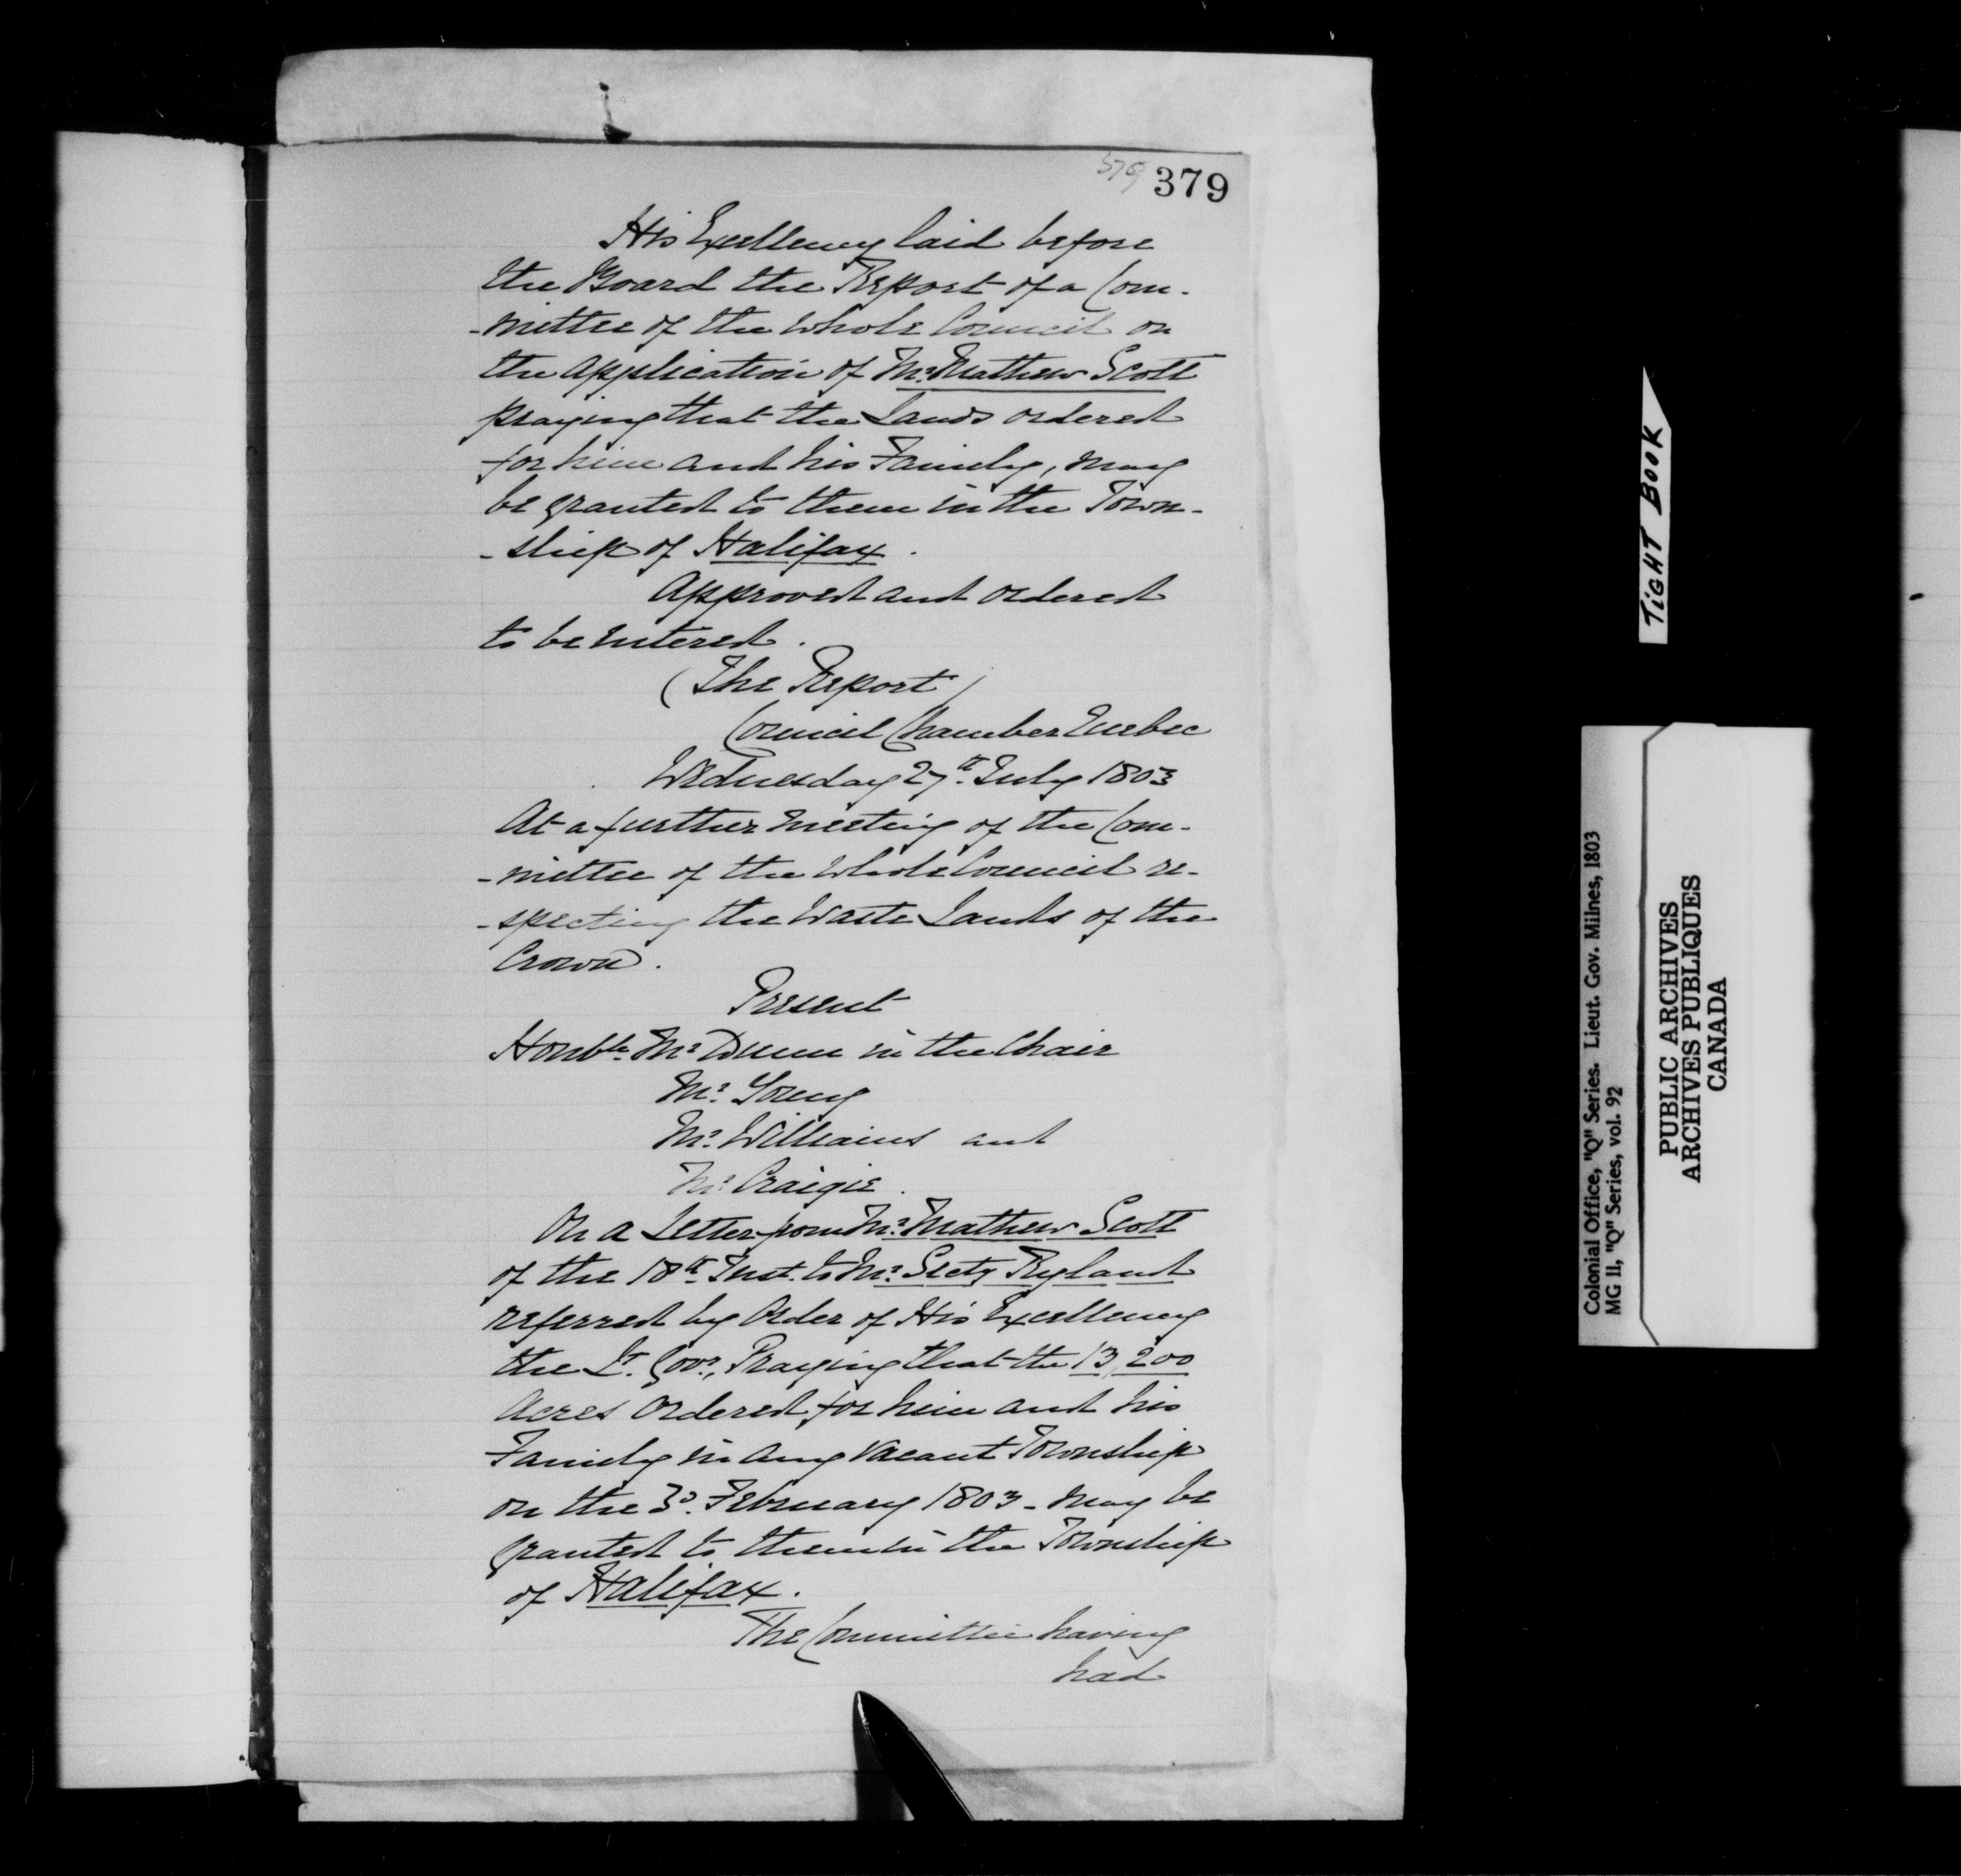 379 379
His Excellency laid before
the Board the Report of a Com-
-mittee of the Whole Council on
the Application of Mr. Mathew Scott
praying that the Lands ordered
for him and his Family, may
be granted to them in the Town-
-ship of Halifax.
Approved and ordered
to be entered.
(The Report)
Council Chamber Quebec
Wednesday 27th July 1803
At a further Meeting of the Com-
-mittee of the Whole Council re-
-specting the Waste Lands of the
Crown.
Present
Honble. Mr Dunn in the Chair
Mr. Young
Mr. Williams and
Mr. Craigie.
On a Letter from Mr. Mathew Scott
of the 18th Inst. to Mr. Secty Ryland
referred by Order of His Excellency
the Lt. Govr., Praying that the 13,200
Acres Ordered for him and his
Family in any vacant Township
on the 3d. February 1803 - may be
granted to them in the Township
of Halifax.
The Committee having
had
TIGHT BOOK
Colonial Office, "Q" Series. Lieut. Gov. Milnes, 1803
MG 11, "Q" Series, vol. 92
PUBLIC ARCHIVES
ARCHIVES PUBLIQUES
CANADA